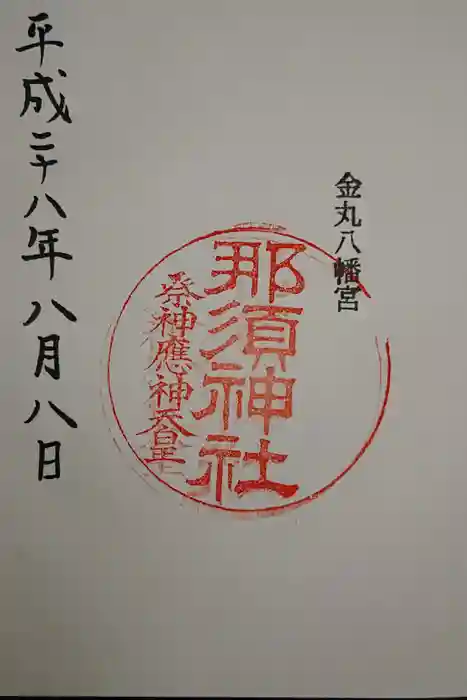 金丸八幡宮
那須神社
祭神應神天皇
平成二十八年八月八日